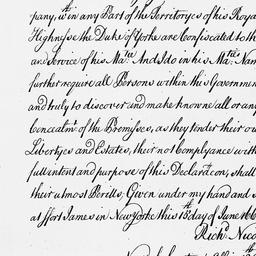 pany, w.th in any Part of the Territoryes of his Roya
Highnesse the Duke of Yorke are Confiscated to th
and service of his Ma.tie And I do in his Ma.ties Nam
further require all Persons within this Governmen
and truly to discover and make knowne all or any
Concealm.t of the Premisses, as they tender their ow
Libertyes and Estates, their not Complyance with
full intent and purpose of this Declaracon, shall
their utmost Perills; Given under my hand and s
at ffort James in New Yorke this 15.th day of June 166
Rich.d Nico